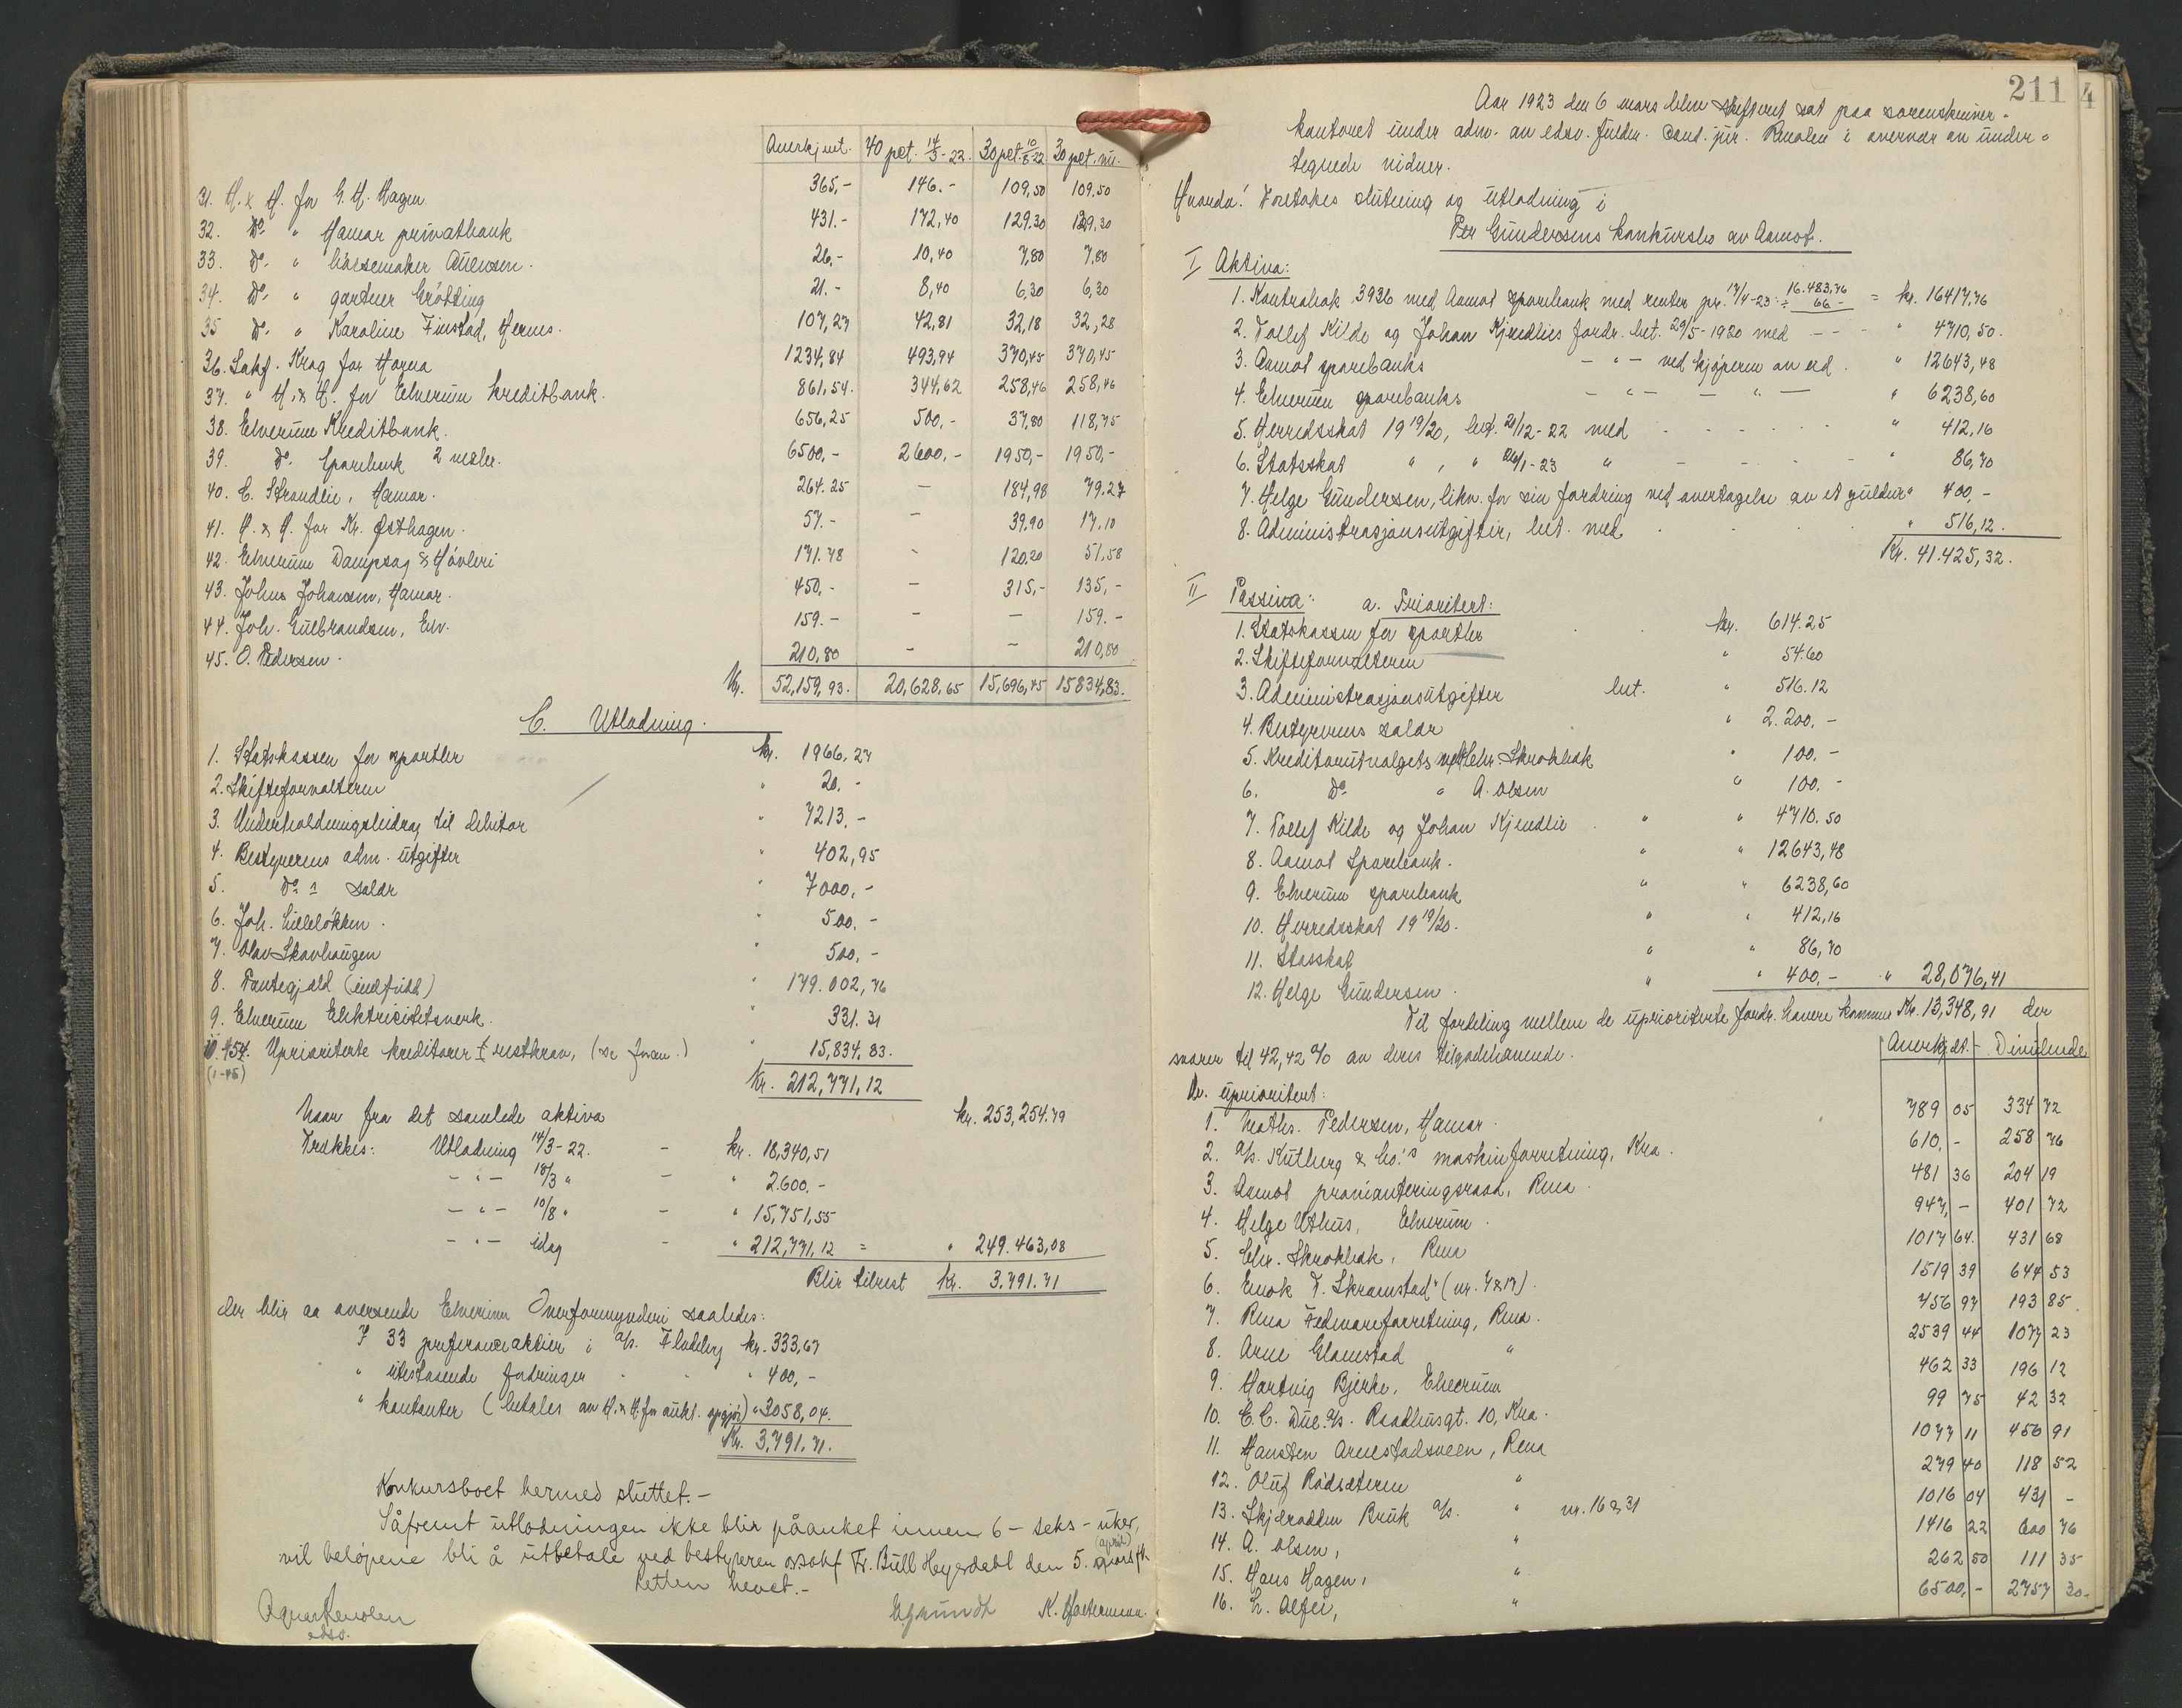 Anerkjent. 40 pct. 14/3-22. 30 pct. 10/8-22 30 pct. nu.
31. H. & H. for G. H. Hagen 365,- 146.- 109,50 109.50
32. Do. " Hamar privatbank 431.- 172,40 129.30 129,30
33. Do. " børsemaker 26,- 10,40 7,80 7,80
34. Do. " gartner Grötting 21.- 8,40 6,30 6,30
35 Do. " Karoline Finstad, Hernes. 107,27 42,81 32,18 32,28
36. Sakf. Krag for Horna 1234,84 493,94 370,45 370,45
37. " H. & H. for Elverum kreditbank. 861,54. 344,62 258,46 258,46
38. Elverum Kreditbank. 656,25 500,- 37,80 118,75
39. Do. Sparebank 2 vexler. 6500,- 2600,- 1950,- 1950,-
40. C. Strandlie, Hamar. 264.25 - 184,98 79.27
41. H. & H. for Kr. Østhagen. 57.- - 39.90 17.10
42. Elverum Dampsag & Høvleri 171.78 - 120,20 51,58
43. Johns Johansen, Hamar. 450,- - 315,- 135,-
44. Joh. Gulbrandsen, Elv. 159.- - - 159.-
45. O. Pedersen. 210,80 - - 210,80
Kr. 52,159,93. 20,628,65 15,696,45 15834,83.
C. Utlodning.
1. Statskassen for sportler kr. 1966,27
2. Skifteforvalteren " 20.-
3. Underholdningsbidrag til debitor " 7213.-
4. Bestyrerens adm. utgifter " 402,95
5. Do. salær " 7000,-
6. Joh. Lilleløkken. " 500,-
7. Olav Skavhaugen " 500,-
8. Pantegjæld (indfridd) " 179.002,76
9. Elverum Elektricitetsverk. " 331.31
10-54. Uprioriterte kreditorer restkrav, (se foran.) " 15,834,83.
(1-45)
Kr. 212,771,12
Naar fra det samlede aktiva kr. 253,254.79
Trækkes: Utlodning 14/3-22. - kr. 18,340,51
- " - 18/3 " - " 2.600.-
- " - 10/8 " - " 15,751,55
- " - idag - " 212,771,12 = " 249.463,08
Blir tilrest Kr. 3.791.71
der blir aa oversende Elverum Overformynderi saaledes:
I 33 preferanceaktier i a/s. Fladeby kr. 333,67
" utestaaende fordringer " 400,-
" kontanter (betales av H. & H. for aukt. opgjør) " 3058,04.
Kr. 3,791.71.
Konkursboet hermed sluttet.-
Såfremt utlodningen ikke blir påanket innen 6 - seks - uker,
(april)
vil beløpene bli å utbetale ved bestyreren o.r.sakf. Fr. Bull Heyerdahl den 5. mars fh.
Retten hevet.-
edsv.
211
4
Aar 1923 den 6 mars blev skifteret sat paa sorenskriver-
kontoret under adm. av edsv. fuldm. cand. jur. Renolen i overvær av under-
tegnede vidner.
Hvorda! Foretokes slutning og utlodning i
Per Gundersens konkursbo av Aamot.
I Aktiva:
1. Kontrabok 3936 med Aamot sparebank med renter pr. 17/4-23: 16.483,76 ÷ 66.- = kr. 16417,76
2. Tollef Kilde og Johan Kjendlies fordr. bet. 29/5-1920 med - - " 4710,50.
3. Aamot sparebanks - " - ved kjøperen av eid. " 12643,48
4. Elverum sparebanks - " - - " - " 6238,60
5. Herredsskat 1919/20, bet. 21/12-22 med " 412,16
6. Statsskat " , " 26/1-23 " " 86,70
7. Helge Gundersen, likv. for sin fordring ved overtagelse av et guldur " 400,-
8. Administrasjonsutgifter, bet. med " 516,12.
Kr. 41.425,32.
II Passiva: a. Prioritert:
1. Statskassen for sportler kr. 614.25
2. Skifteforvalteren " 54.60
3. Administrasjonsutgifter bet. " 516.12
4. Bestyrerens salær " 2.200,-
5. Kreditorutvalgets ved Chr. Skrokbæk " 100.-
6. Do. " A. Olsen " 100,-
7. Tollef Kilde og Johan Kjendlie " " 4710.50
8. Aamot Sparebank. " " 12643,48
9. Elverum sparebank " " 6238,60
10. Herredsskat 1919/20. " " 412,16
11. Stasskat " " 86,70
12. Helge Gundersen. " " 400,- " 28,076,41
Til fordeling mellem de uprioriterte fordr. havere kommer Kr. 13,348,91 der
svarer til 42,42 % av deres tilgodehavende. Anerkjdt. Dividende
b. uprioritert:
1. Maths. Pedersen, Hamar. 789 05 334 72
2. a/s. Kutberg & Co.'s maskinforretning, Kra. 610,- 258 76
3. Aamot provianteringsraad, Rena. 481 36 204 19
4. Helge Uthus, Elverum. 947,- 401 72
5. Chr. Skrokbæk, Rena 1017 64. 431 68
6. Enok T. Skramstad " (nr. 7 & 17). 1519 39 644 53
7. Rena Fedevareforretning, Rena. 456 97 193 85.
8. Arne Glomstad " 2539 44 1077 23
9. Hartvig Bjerke, Elverum 462 33 196 12
10. E. C. Due a/s. Raadhusgt. 10, Kra. 99 75 42 32
11. Hansten Arnestadsveen, Rena 1077 11 456 91
12. Oluf Rødsæteren " 279 40 118 52
13. Skjelrodden Bruk a/s. " nr. 16 & 31 1016 04 431 -
14. A. Olsen, " 1416 22 600 76
15. Hans Hagen, " 262 50 111 35
16. L. " 6500,- 2757 30.